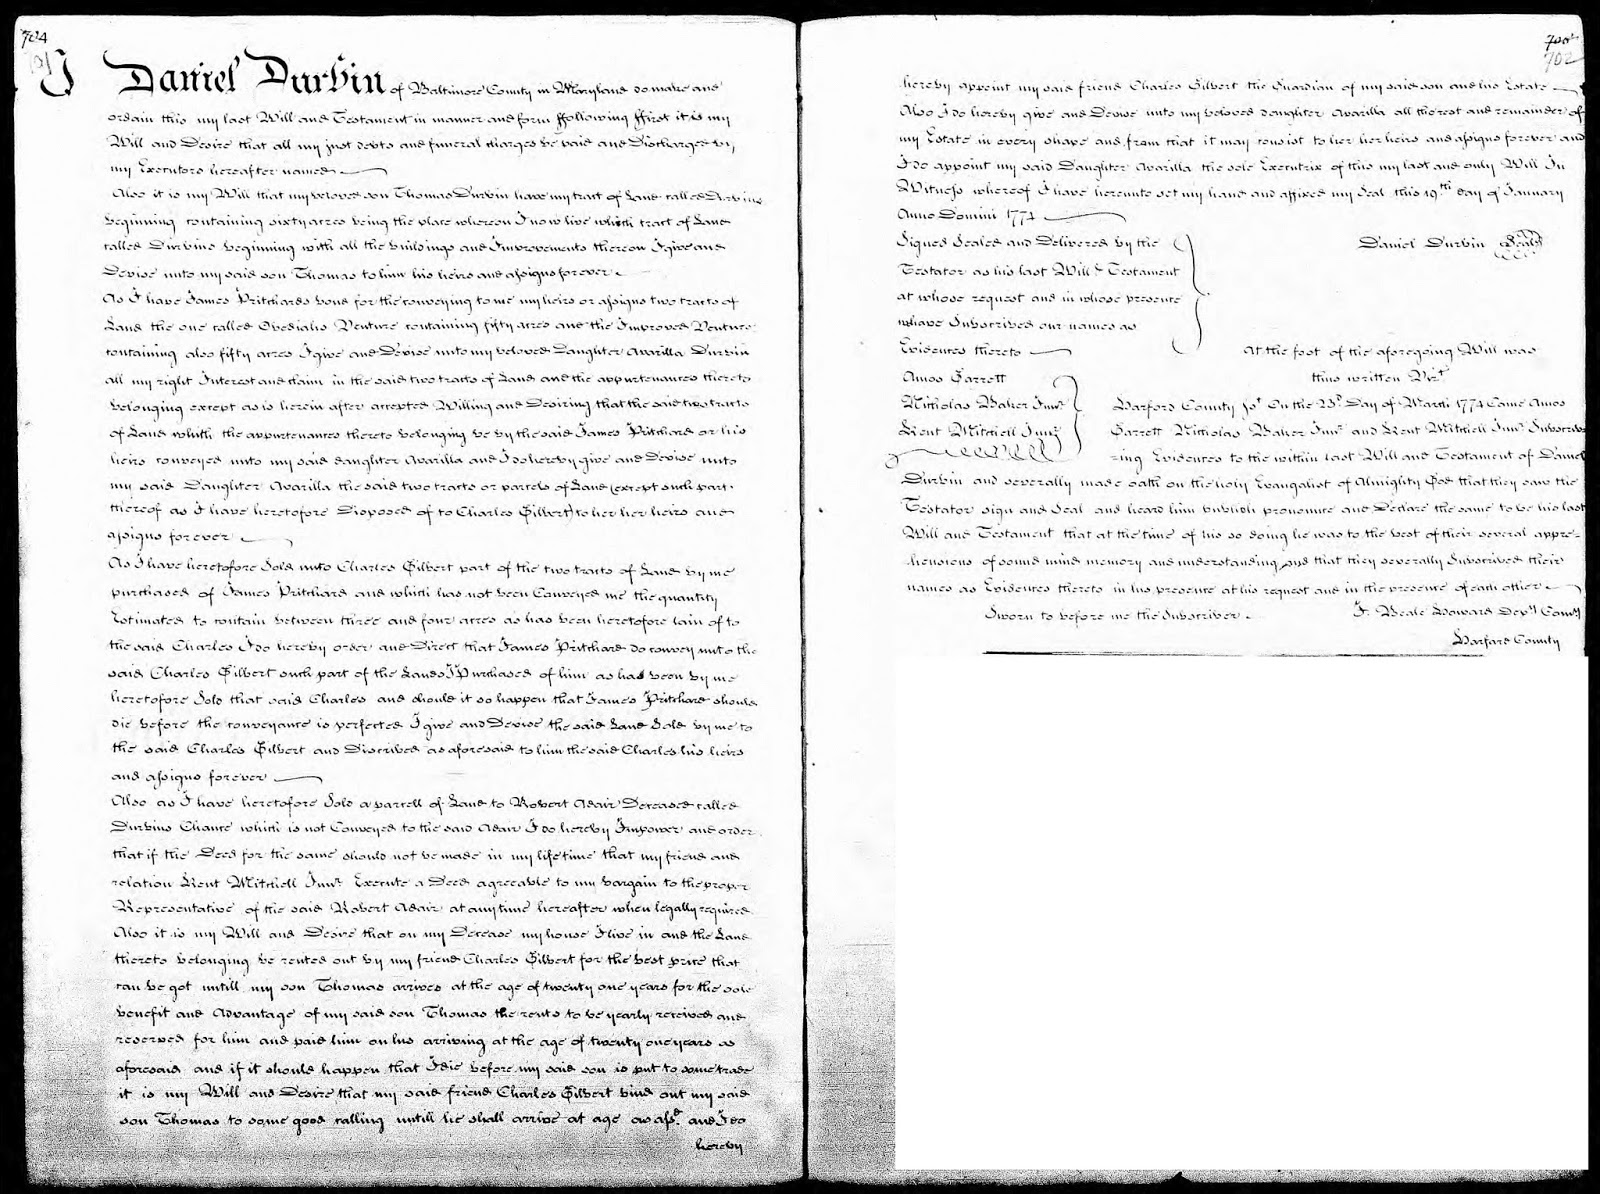 704
701
I Daniel Durbin of Baltimore County in Maryland do make and
ordain this my last Will and Testament in manner and form ffollowing ffirst it is my
Will and Desire that all my just debts and funeral charges be paid and Discharged by
my Executors hereafter named
Also it is my Will that my beloved son Thomas Durbin have my tract of Land called Durbins
beginning containing sixty acres being the place whereon I now live which tract of Land
called Durbins beginning with all the buildings and Improvements thereon I give and
Devise unto my said son Thomas to him his heirs and assigns forever
As I have James Pritchards bond for the conveying to me my heirs or assigns two tracts of
Land the one called Obediahs Venture containing fifty acres and the Improved Venture
containing also fifty acres I give and Devise unto my beloved Daughter Avarilla Durbin
all my right Interest and claim in the said two tracts of Land and the appurtenances thereto
belonging except as is herein after accepted Willing and Desiring that the said two tracts
of Land whith the appurtenances thereto belonging be by the said James Pritchard or his
heirs conveyed unto my said daughter Avarilla and I do hereby give and Devise unto
my said Daughter Avarilla the said two tracts or parcels of Land (except such part
thereof as I have heretofore Disposed of to Charles Gilbert) to her her heirs and
assigns forever
As I have heretofore Sold unto Charles Gilbert part of the two tracts of Land by me
purchased of James Pritchard and which has not been Conveyed me the quantity
Estimated to contain between three and four acres as has been heretofore lain of to
the said Charles I do hereby order and Direct that James Pritchard do convey unto the
said Charles Gilbert such part of the Lands I Purchased of him as had been by me
heretofore Sold that said Charles and should it so happen that James Pritchard should
die before the conveyance is perfected I give and Devise the said Land Sold by me to
the said Charles Gilbert and Discribed as aforesaid to him the said Charles his heirs
and assigns forever
Also as I have heretofore Sold a parcell of Land to Robert Adair Deceased called
Durbins Chance which is not Conveyed to the said Adair I do hereby Impower and order
that if the Deed for the same should not be made in my lifetime that my friend and
relation Kent Mitchell Junr. Execute a Deed agreeable to my bargain to the proper
Representative of the said Robert Adair at any time hereafter when legally required
Also it is my Will and Desire that on my Decease my house I live in and the Land
thereto belonging be rented out by my friend Charles Gilbert for the best price that
can be got untill my son Thomas arrives at the age of twenty one years for the sole
benefit and Advantage of my said son Thomas the rents to be yearly received and
reserved for him and paid him on his arriving at the age of twenty one years as
aforesaid and if it should happen that I die before my said son is put to some trade
it is my Will and Desire that my said friend Charles Gilbert bind out my said
son Thomas to some good calling untill he shall arrive at age as afsd. and I do
hereby
702
hereby appoint my said friend Charles Gilbert the Guardian of my said son and his Estate
Also I do hereby give and Devise unto my beloved daughter Avarilla all the rest and remainder of
my Estate in every shape and from that it may consist to her her heirs and assigns forever and
I do appoint my said Daughter Avarilla the sole Executrix of this my last and only Will In
Witness whereof I have hereunto set my hand and affixed my Seal this 19th day of January
Anno Domini 1774
Signed Sealed and Delivered by the
Daniel Durbin Seal
Testator as his last Will & Testament
at whose request and in whose presence
whave Subscribed our names as
Evidences thereto
At the foot of the aforegoing Will was
thus written Vizt
Amos Garrett
Nicholas Baker Junr
Kent Mitchell Junr
Harford County Sst On the 23d Day of March 1774 Came Amos
Garrett Nicholas Baker Junr. and Kent Mitchell Junr. Subscrib
ring Evidences to the within last Will and Testament of Daniel
Durbin and severally made oath on the holy Evangelist of Almighty God that they saw the
Testator sign and Seal and heard him publish pronounce and Declare the same to be his last
Will and Testament that at the time of his so doing he was to the best of their several appre-
hensions of sound mind memory and understanding and that they severally Subscribed their
names as Evidences thereto in his presence at his request and in the presence of each other
Sworn to before me the Subscriber
J. Beale Howard Depy Comry
Harford County